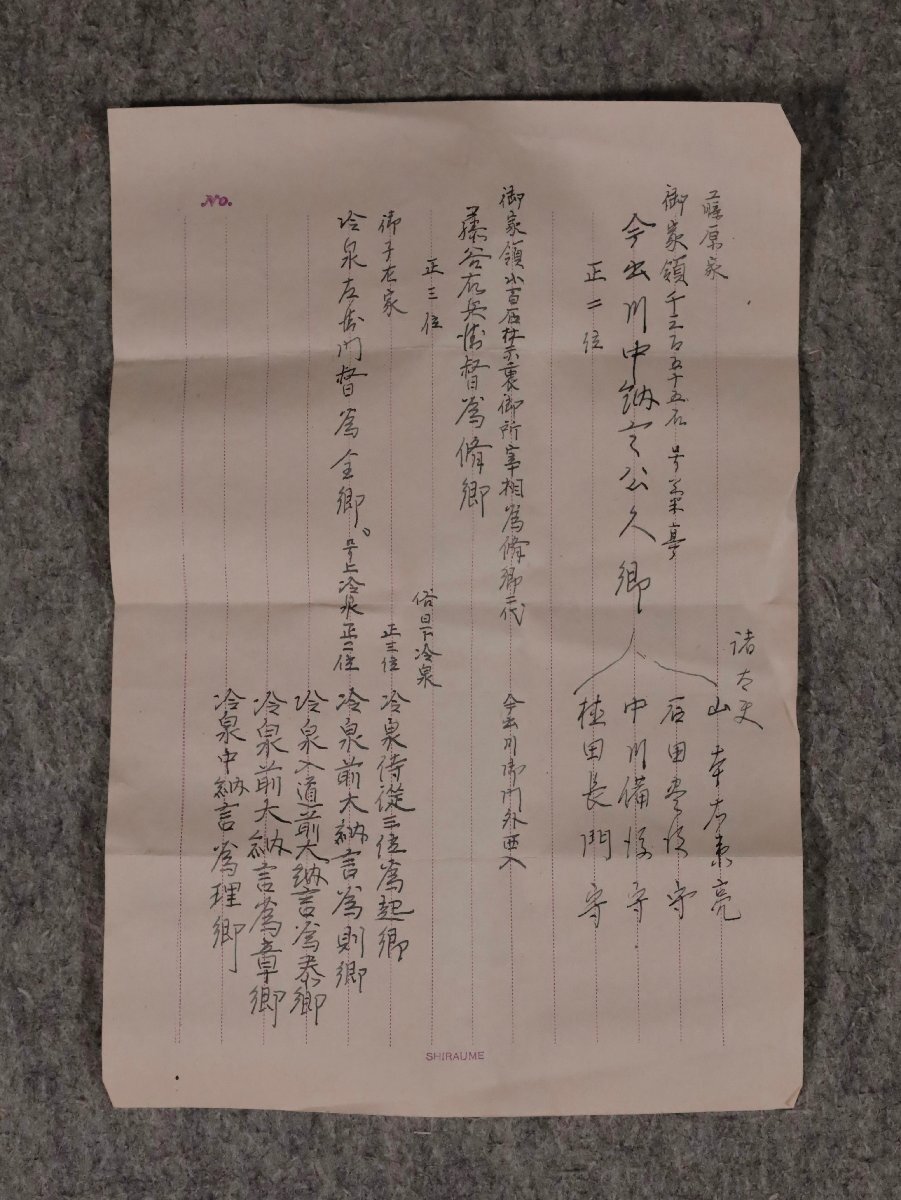 No.
藤原家
御家領千三百五十五石 号菊亭
今出川中納言公久卿
正二位
諸大夫
山本右京亮
石田豊後守
中川備後守
桂田長門守
御家領小百石禁裏御所宰相為脩卿二代
今出川御門外西入
藤谷右兵衛督為脩卿
正三位
御子左家
冷泉左衛門督為全卿。号上冷泉正二位
俗曰下冷泉
正三位 冷泉侍従三位為起卿
冷泉前大納言為則卿
冷泉入道前大納言為泰卿
冷泉前大納言為章卿
冷泉中納言為理卿
SHIRAUME